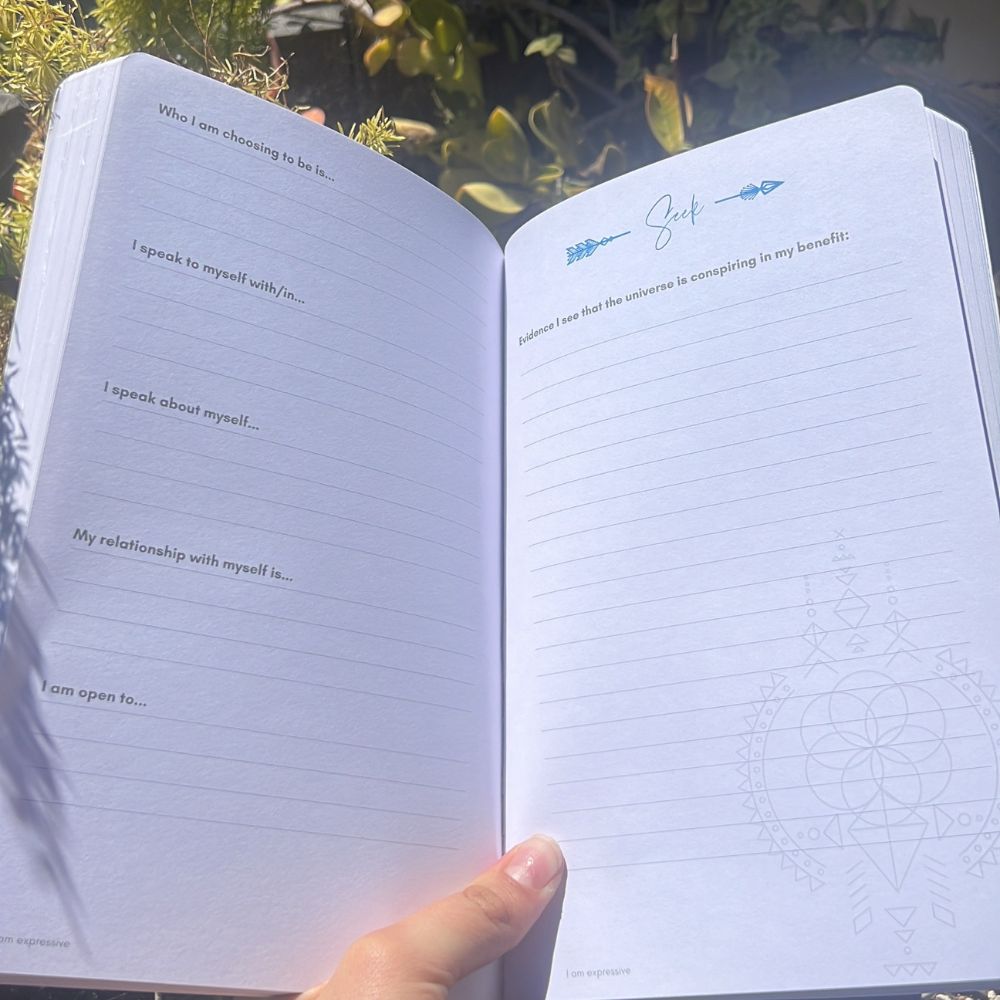 Who I am choosing to be is...
I speak to myself with/in...
I speak about myself...
My relationship with myself is...
I am open to...
am expressive
Seek
Evidence I see that the universe is conspiring in my benefit:
I am expressive